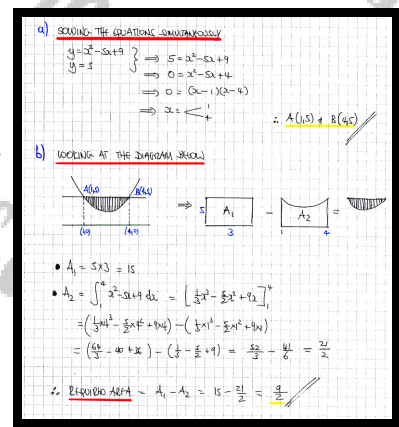 a) SOLVING THE EQUATIONS SIMULTANEOUSLY
y = x² - 5x + 9
y = 5
} ⇒ 5 = x² - 5x + 9
⇒ 0 = x² - 5x + 4
⇒ 0 = (x - 1)(x - 4)
⇒ x = < 1
4
∴ A(1,5) & B(4,5)
b) LOOKING AT THE DIAGRAM BELOW
A(1,5) B(4,5)
(1,0) (4,0)
⇒ 5 A₁ - A₂ =
3 1 4
• A₁ = 5 × 3 = 15
• A₂ = ∫₁⁴ x² - 5x + 9 dx = [⅓x³ - 5/2 x² + 9x]₁⁴
= (⅓×4³ - 5/2×4² + 9×4) - (⅓×1³ - 5/2×1² + 9×1)
= (64/3 - 40 + 36) - (1/3 - 5/2 + 9) = 52/3 - 41/6 = 21/2
∴ REQUIRED AREA = A₁ - A₂ = 15 - 21/2 = 9/2